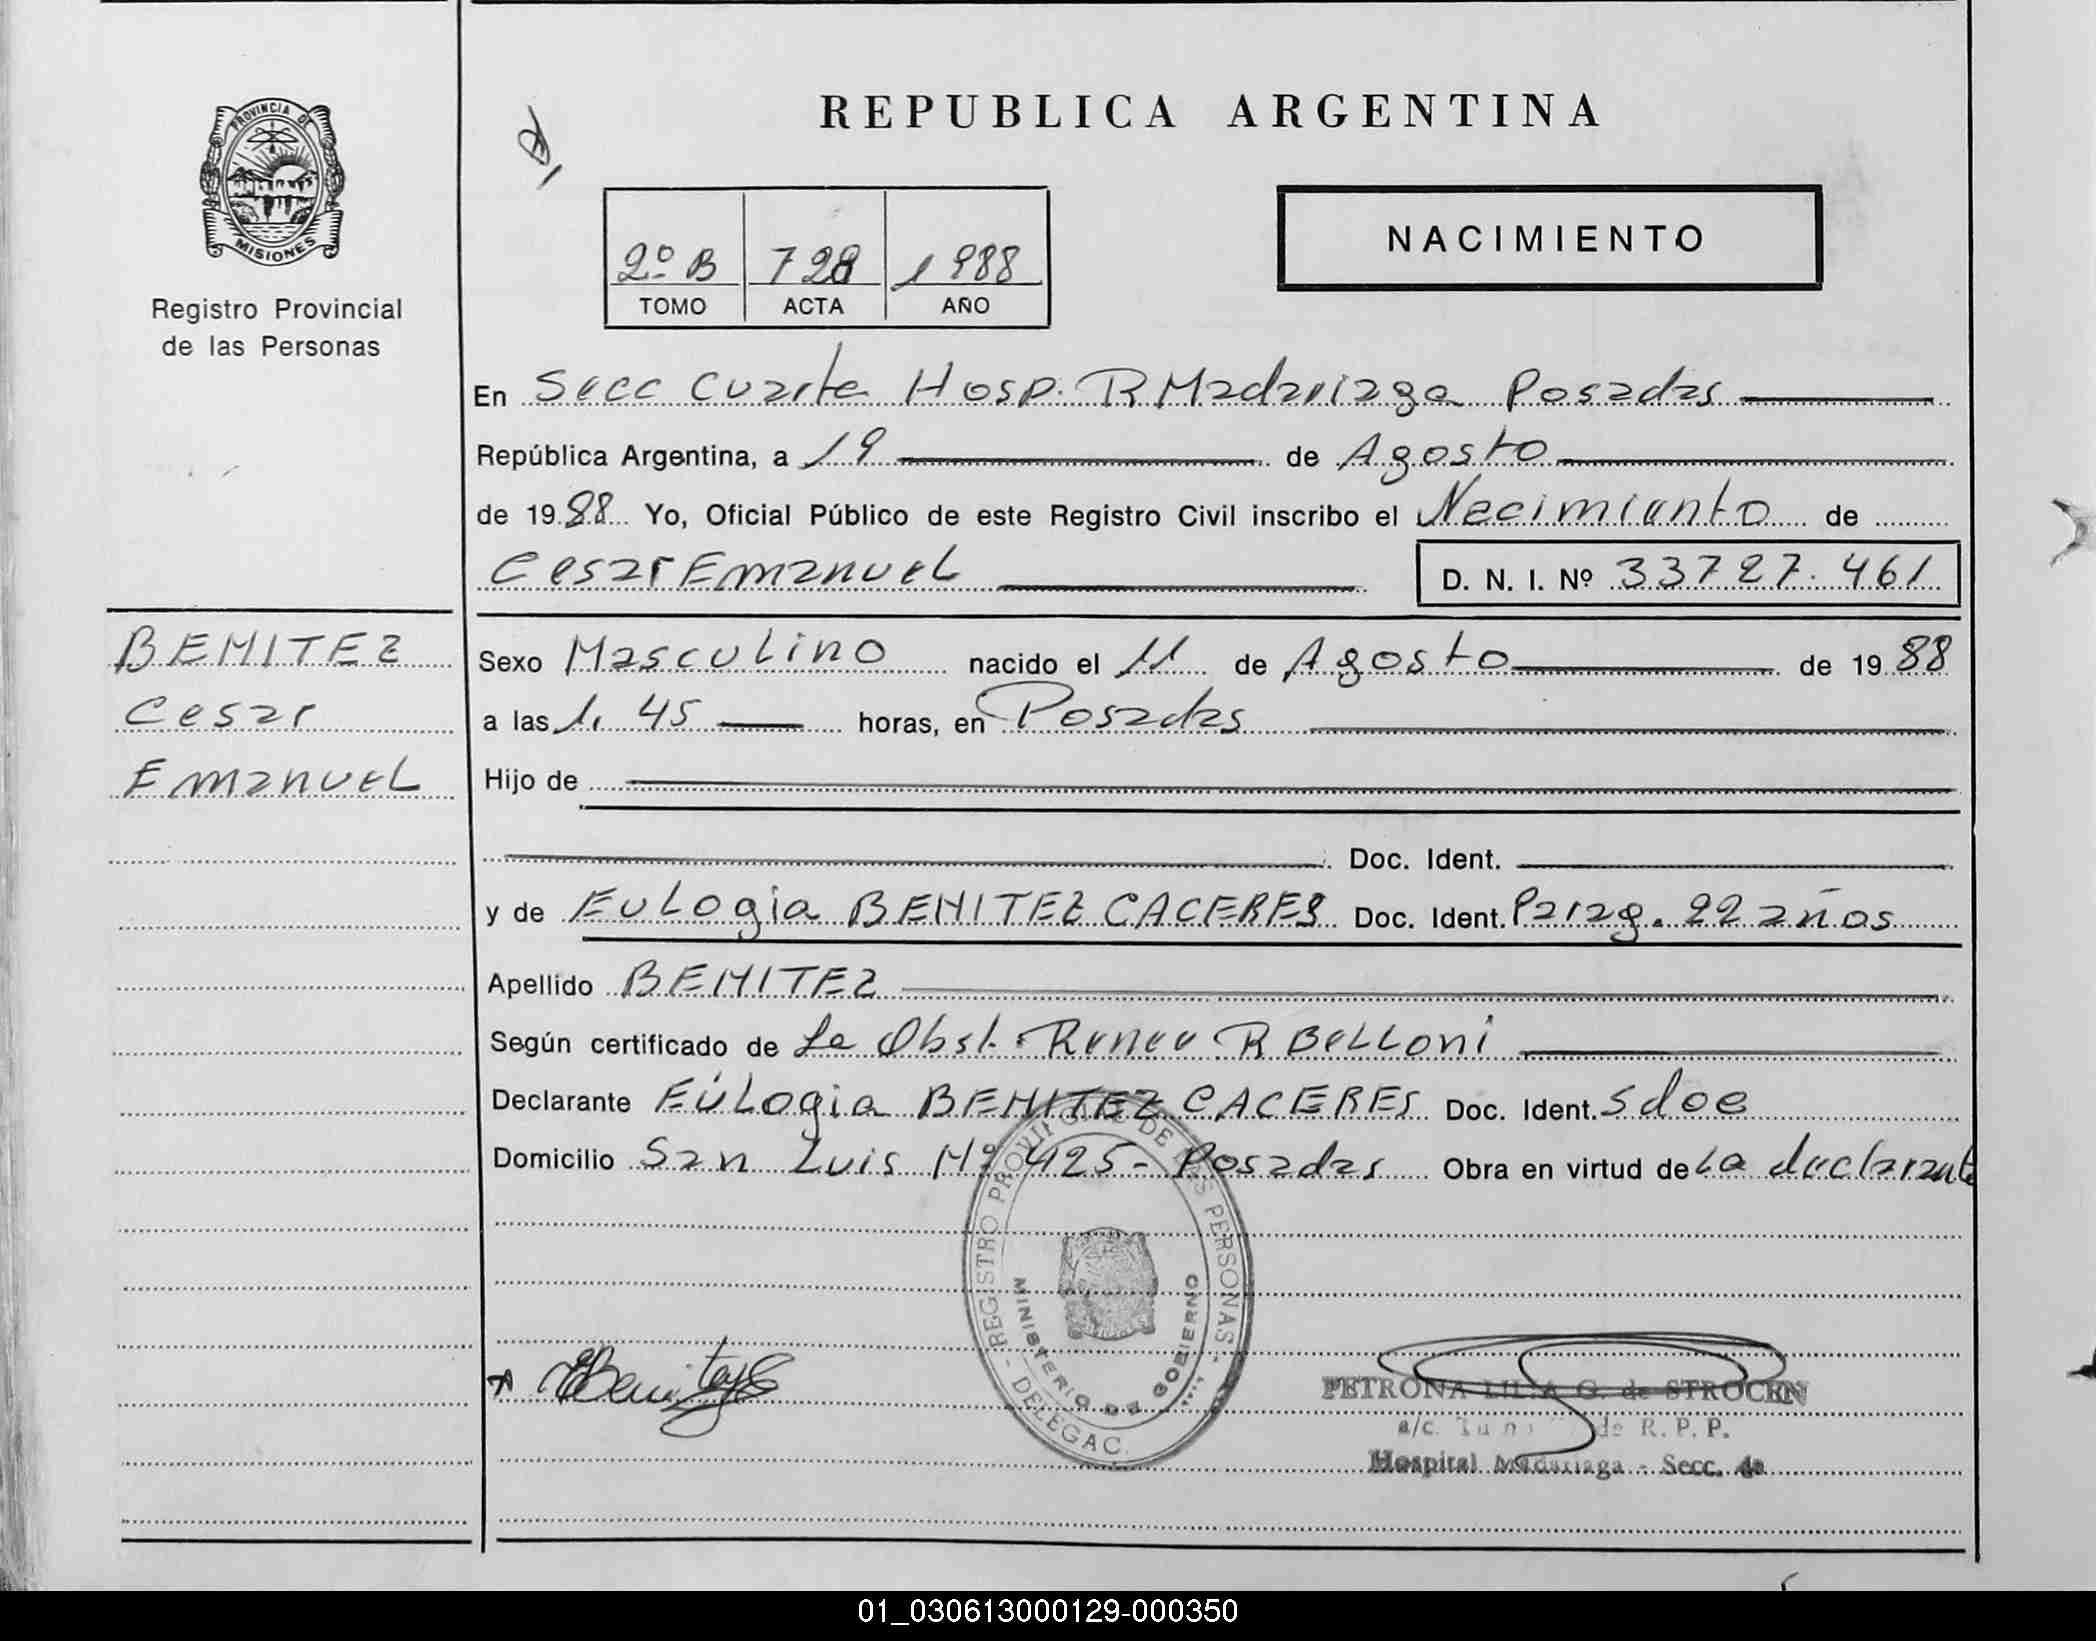 REPUBLICA ARGENTINA
PROVINCIA DE
MISIONES
Registro Provincial
de las Personas
2º B 728 1988
TOMO ACTA AÑO
NACIMIENTO
En Secc Cuarta Hosp. R Madariaga Posadas
República Argentina, a 19 de Agosto
de 1988 Yo, Oficial Público de este Registro Civil inscribo el Nacimiento de
Cesar Emanuel D. N. I. Nº 33727.461
BENITEZ
Cesar
Emanuel
Sexo Masculino nacido el 11 de Agosto de 1988
a las 1. 45 horas, en Posadas
Hijo de
Doc. Ident.
y de Eulogia BENITEZ CACERES Doc. Ident. Parag. 22 años
Apellido BENITEZ
Según certificado de La Obst. Renee R Belloni
Declarante Eulogia BENITEZ CACERES Doc. Ident. Sdoe
Domicilio San Luis Nº 425- Posadas Obra en virtud de La declarante
- REGISTRO PROVINCIAL DE LAS PERSONAS -
MINISTERIO DE GOBIERNO
- DELEGAC.
PETRONA LILIA G. de STROCEN
a/c. de R. P. P.
Hospital Madariaga - Secc. 4a
01_030613000129-000350